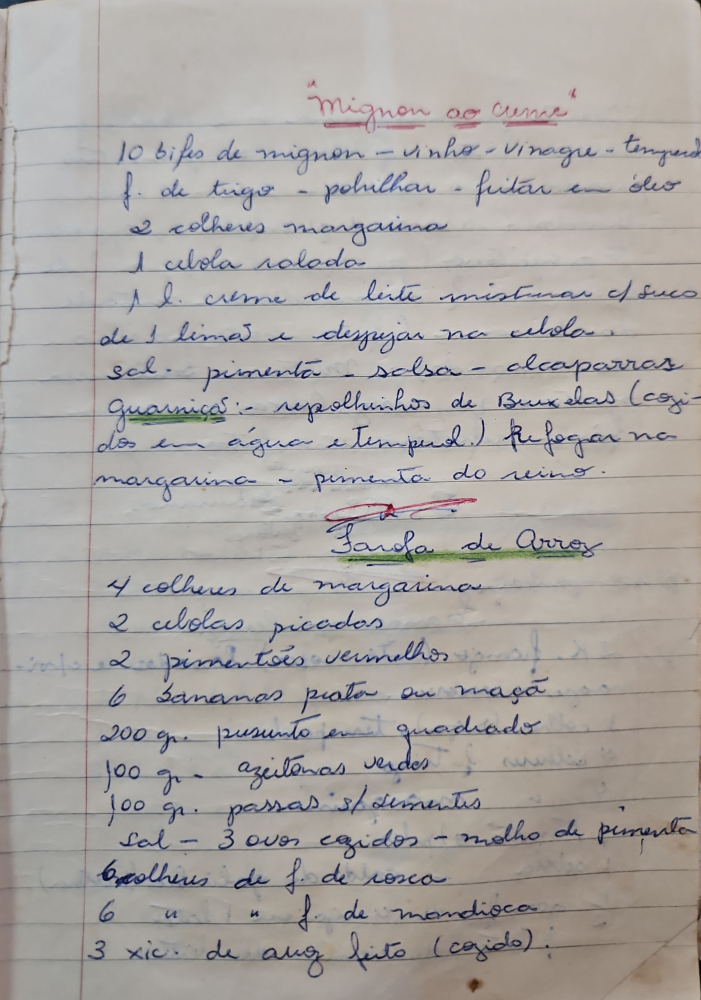 "Mignon ao creme"
10 bifes de mignon - vinho - vinagre - temperos
f. de trigo - polvilhar - fritar em óleo
2 colheres margarina
1 cebola ralada
1 l. creme de leite misturar c/ suco
de 1 limão e despejar na cebola.
sal - pimenta - salsa - alcaparras
Guarnição:- repolhinhos de Bruxelas (cozi-
dos em água e temperad.) Refogar na
margarina - pimenta do reino.
Farofa de Arroz
4 colheres de margarina
2 cebolas picadas
2 pimentões vermelhos
6 bananas prata ou maçã
200 gr. presunto em quadrado
100 gr. azeitonas verdes
100 gr. passas s/ sementes
sal - 3 ovos cozidos - molho de pimenta
6 colheres de f. de rosca
6 " " f. de mandioca
3 xic. de arroz feito (cozido).